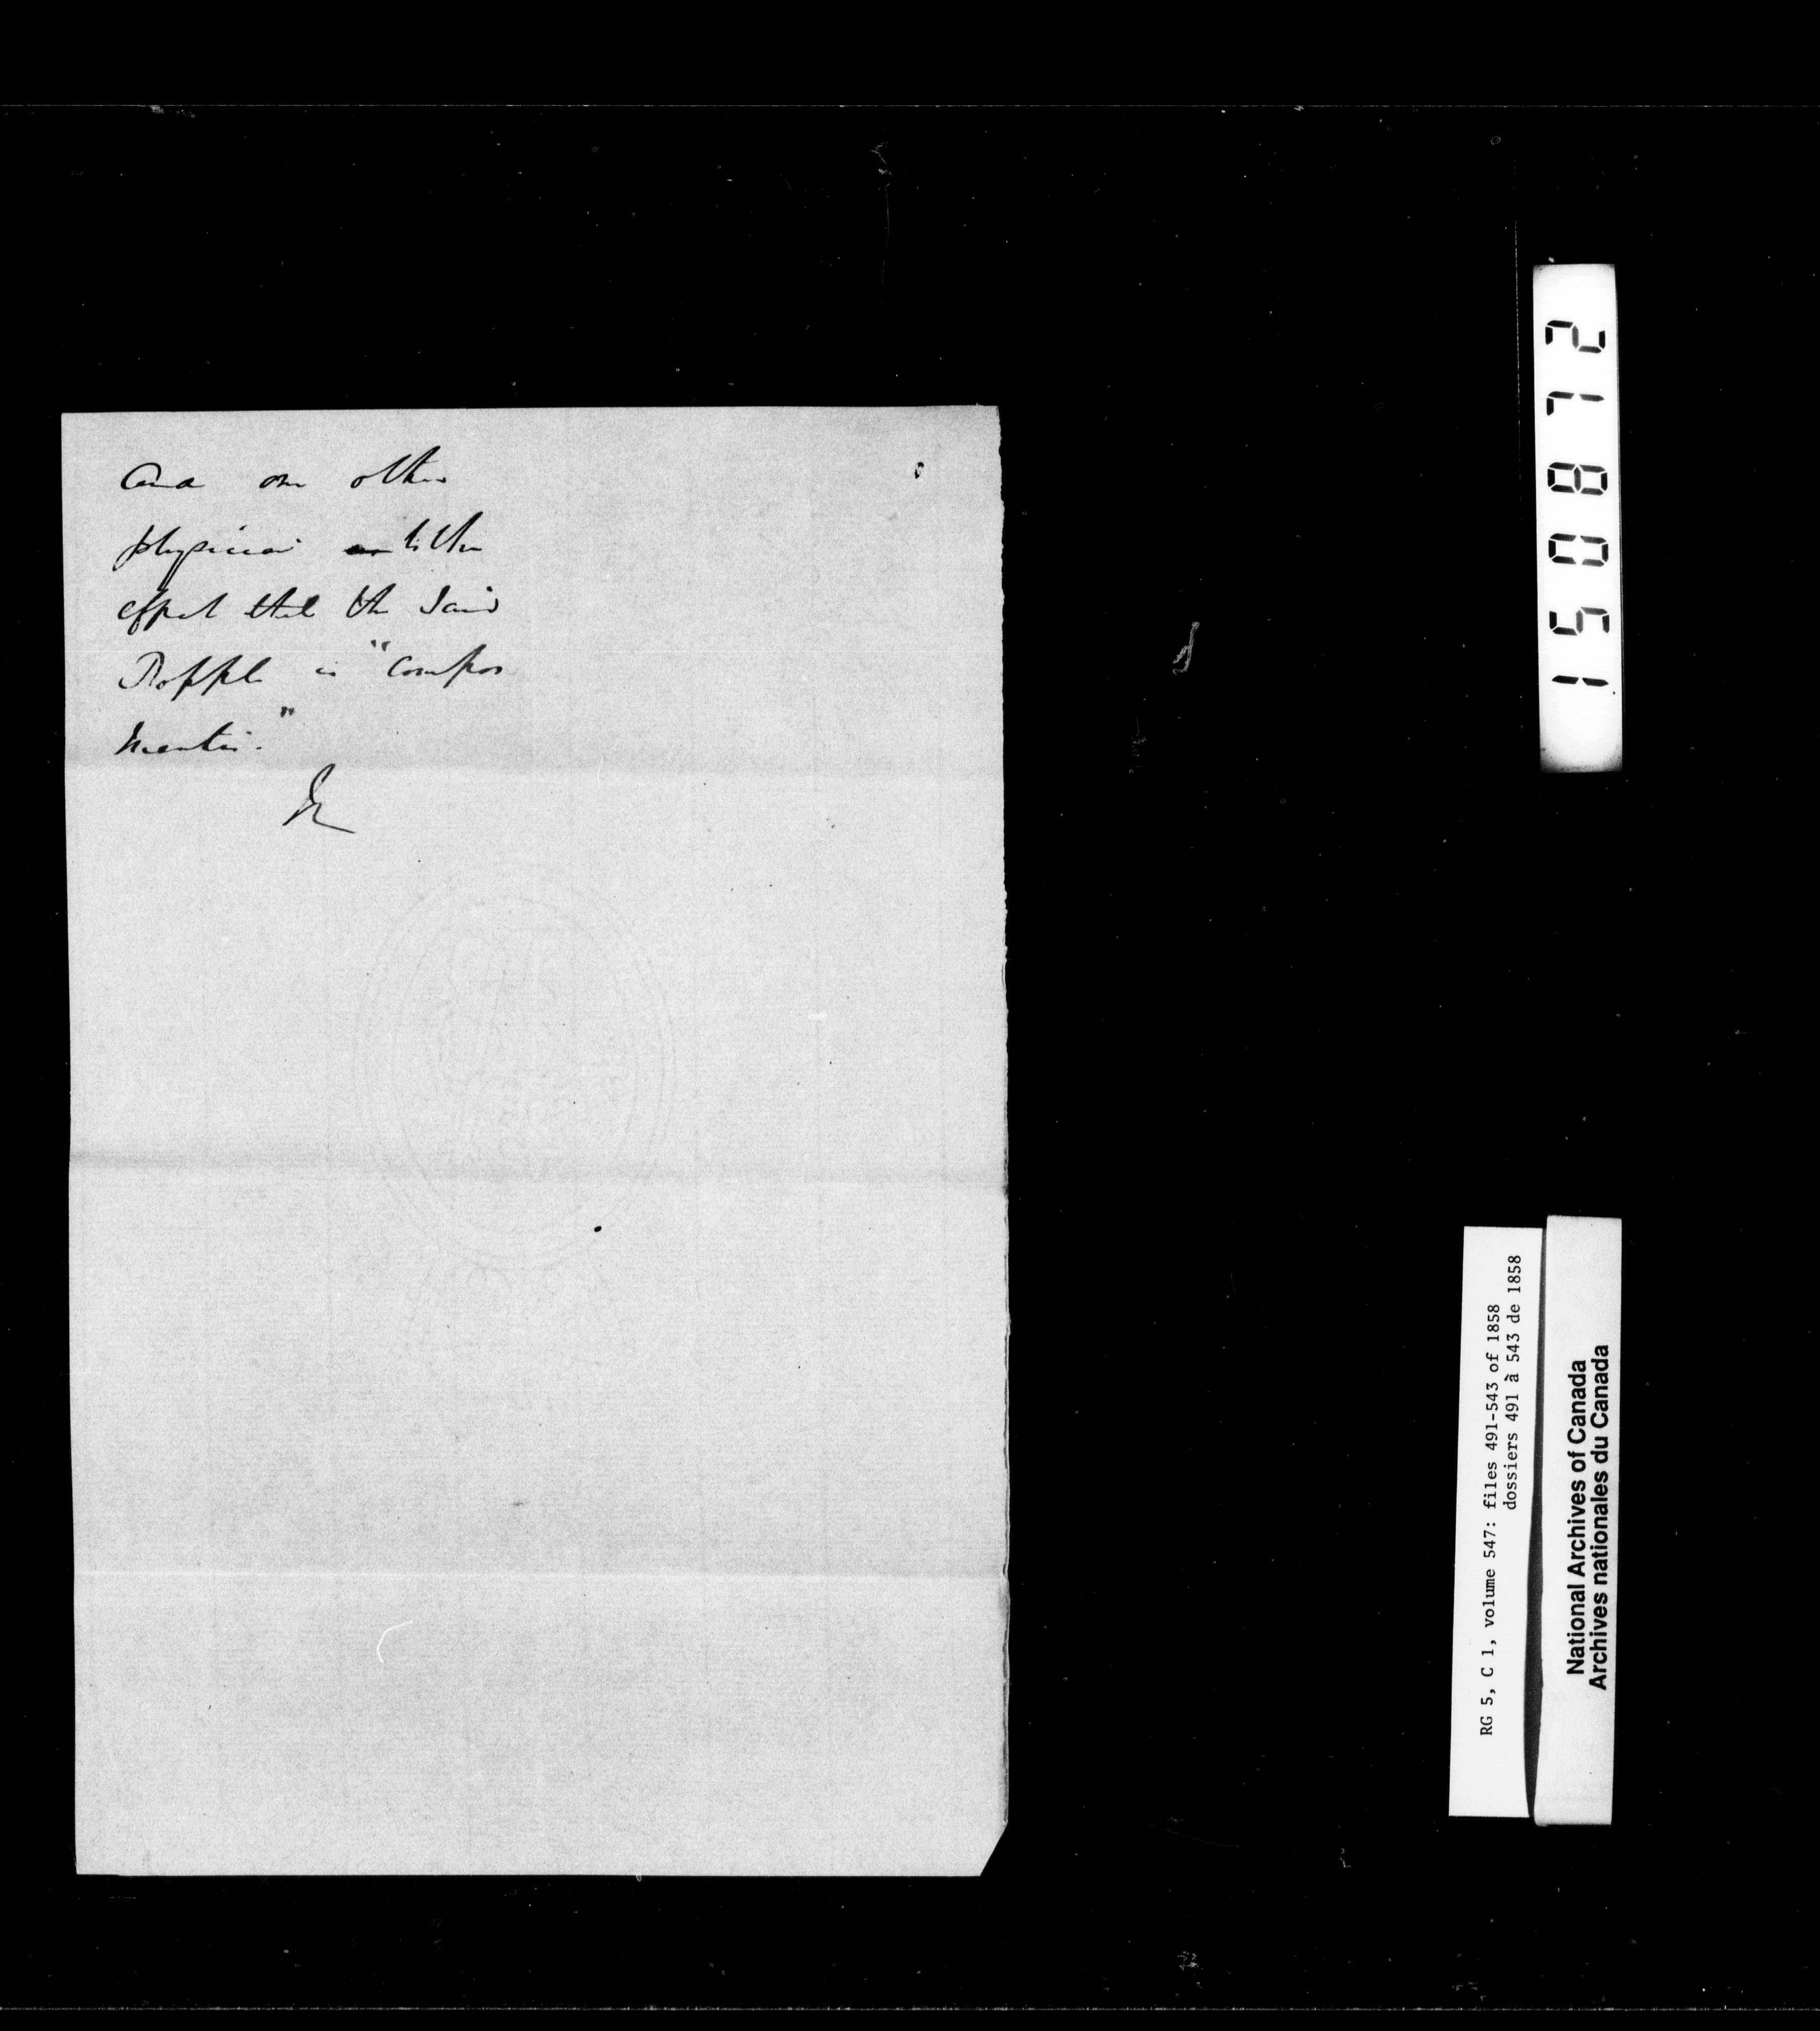 and one other
physician to the
effect that the said
Ropple is "compos
mentis."
150872
RG 5, C 1, volume 547: files 491-543 of 1858
dossiers 491 à 543 de 1858
National Archives of Canada
Archives nationales du Canada